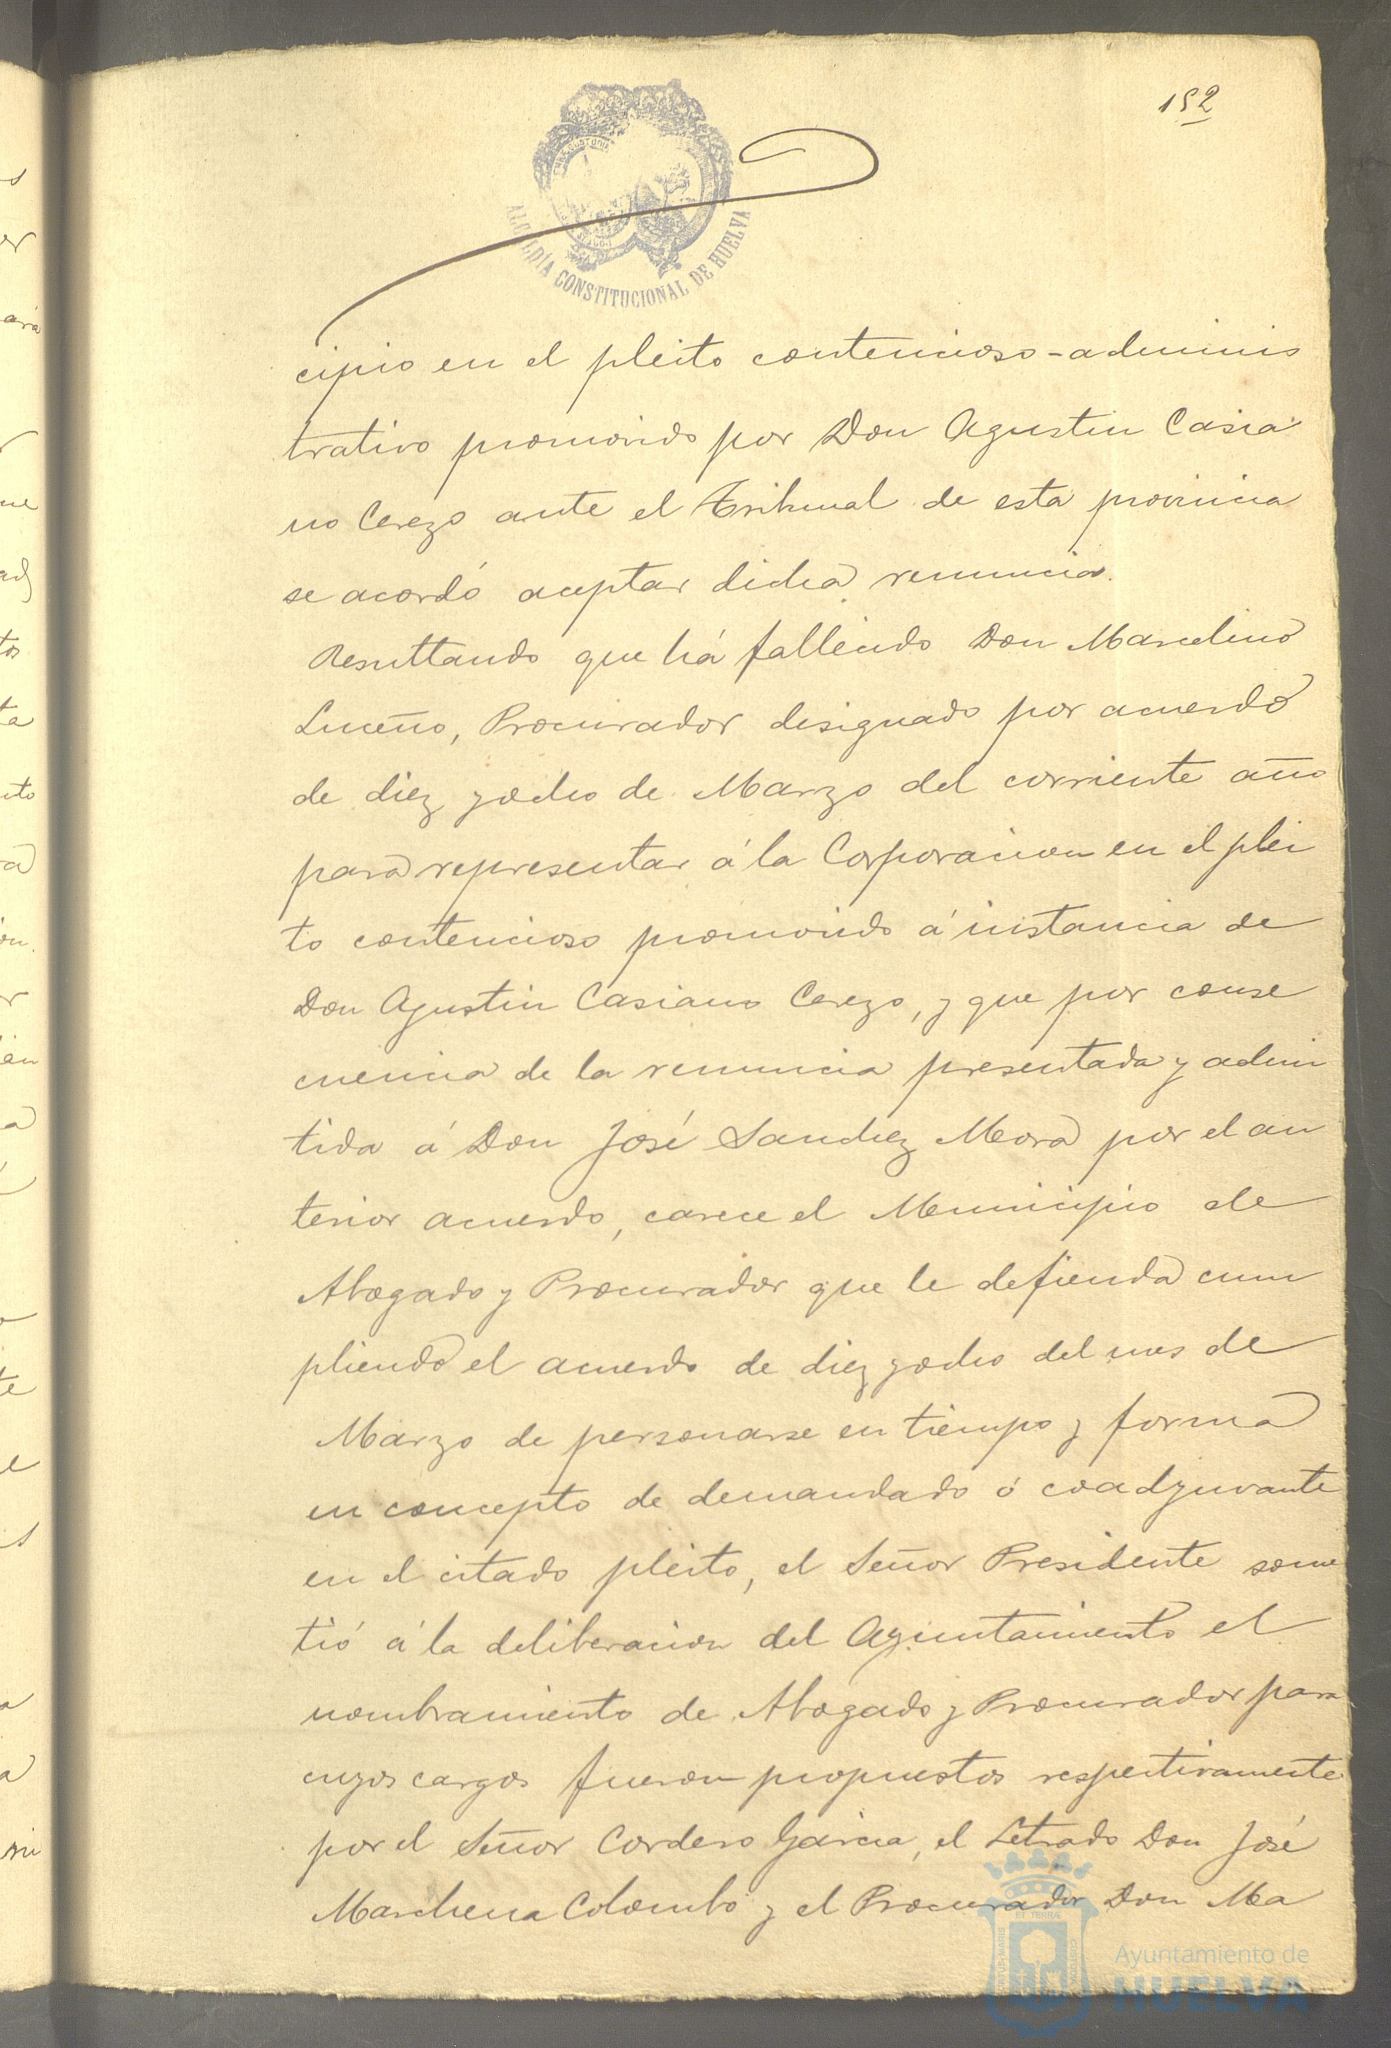 152
ALCALDÍA CONSTITUCIONAL DE HUELVA
cipio en el pleito contencioso-adminis
trativo promovido por Don Agustin Casia
no Cerezo ante el Tribunal de esta provincia
se acordó aceptar dicha renuncia.
Resultando que há fallecido Don Marcelino
Luceño, Procurador designado por acuerdo
de diez y ocho de Marzo del corriente año
para representar á la Corporacion en el plei
to contencioso promovido á instancia de
Don Agustin Casiano Cerezo, y que por conse
cuencia de la renuncia presentada y admi
tida á Don José Sanchez Mora por el an
terior acuerdo, carece el Municipio de
Abogado y Procurador que le defienda cum
pliendo el acuerdo de diez y ocho del mes de
Marzo de personarse en tiempo y forma
en concepto de demandado ó coadyuvante
en el citado pleito, el Señor Presidente some
tió á la deliberacion del Ayuntamiento el
nombramiento de Abogado y Procurador para
cuyos cargos fueron propuestos respectivamente
por el Señor Cordero Garcia, el Letrado Don José
Marchena Colombo y el Procurador Don Ma
Ayuntamiento de
HUELVA